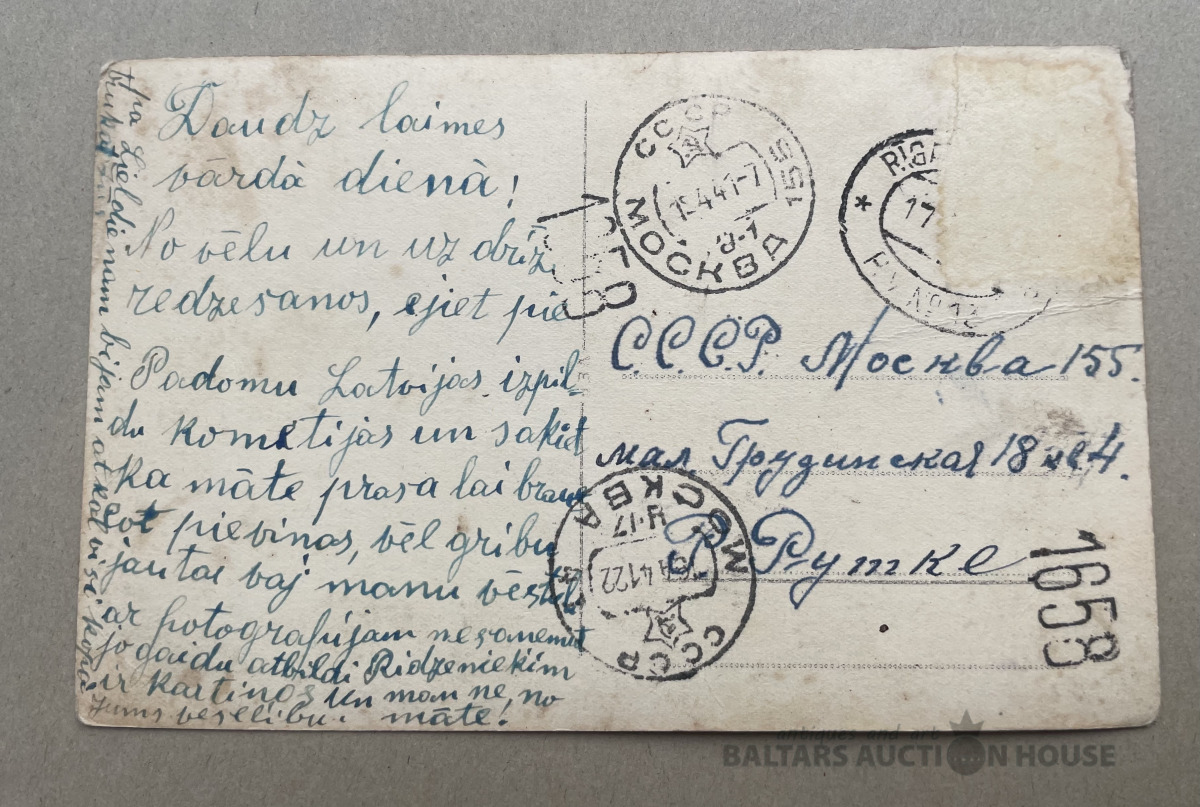 Daudz laimes
vārdā dienā!
No vēlu un uz drīz
redzesanos, ejiet pie
Padomu Latvijas izpil-
du kometijas un sakiet
ka māte prasa lai brauc
pievinas, vēl gribu
jautat vaj manu vēstuli
ar fotografijam nesanemat
jo gaidu atbildi Ridzeniekim
ir kartinas un man ne, no
Jums veselibu. māte!
Lieldienam bijam atkal visi kopā
СССР
МОСКВА
155
8-1
RIGA
17
No 14
С.С.С.Р. Москва 155.
мал. Грузинская 18 кв 4.
Р. Рутке
МОСКВА
Н-17
4122
СССР
1658
antiques and art
BALTARS AUCTION HOUSE